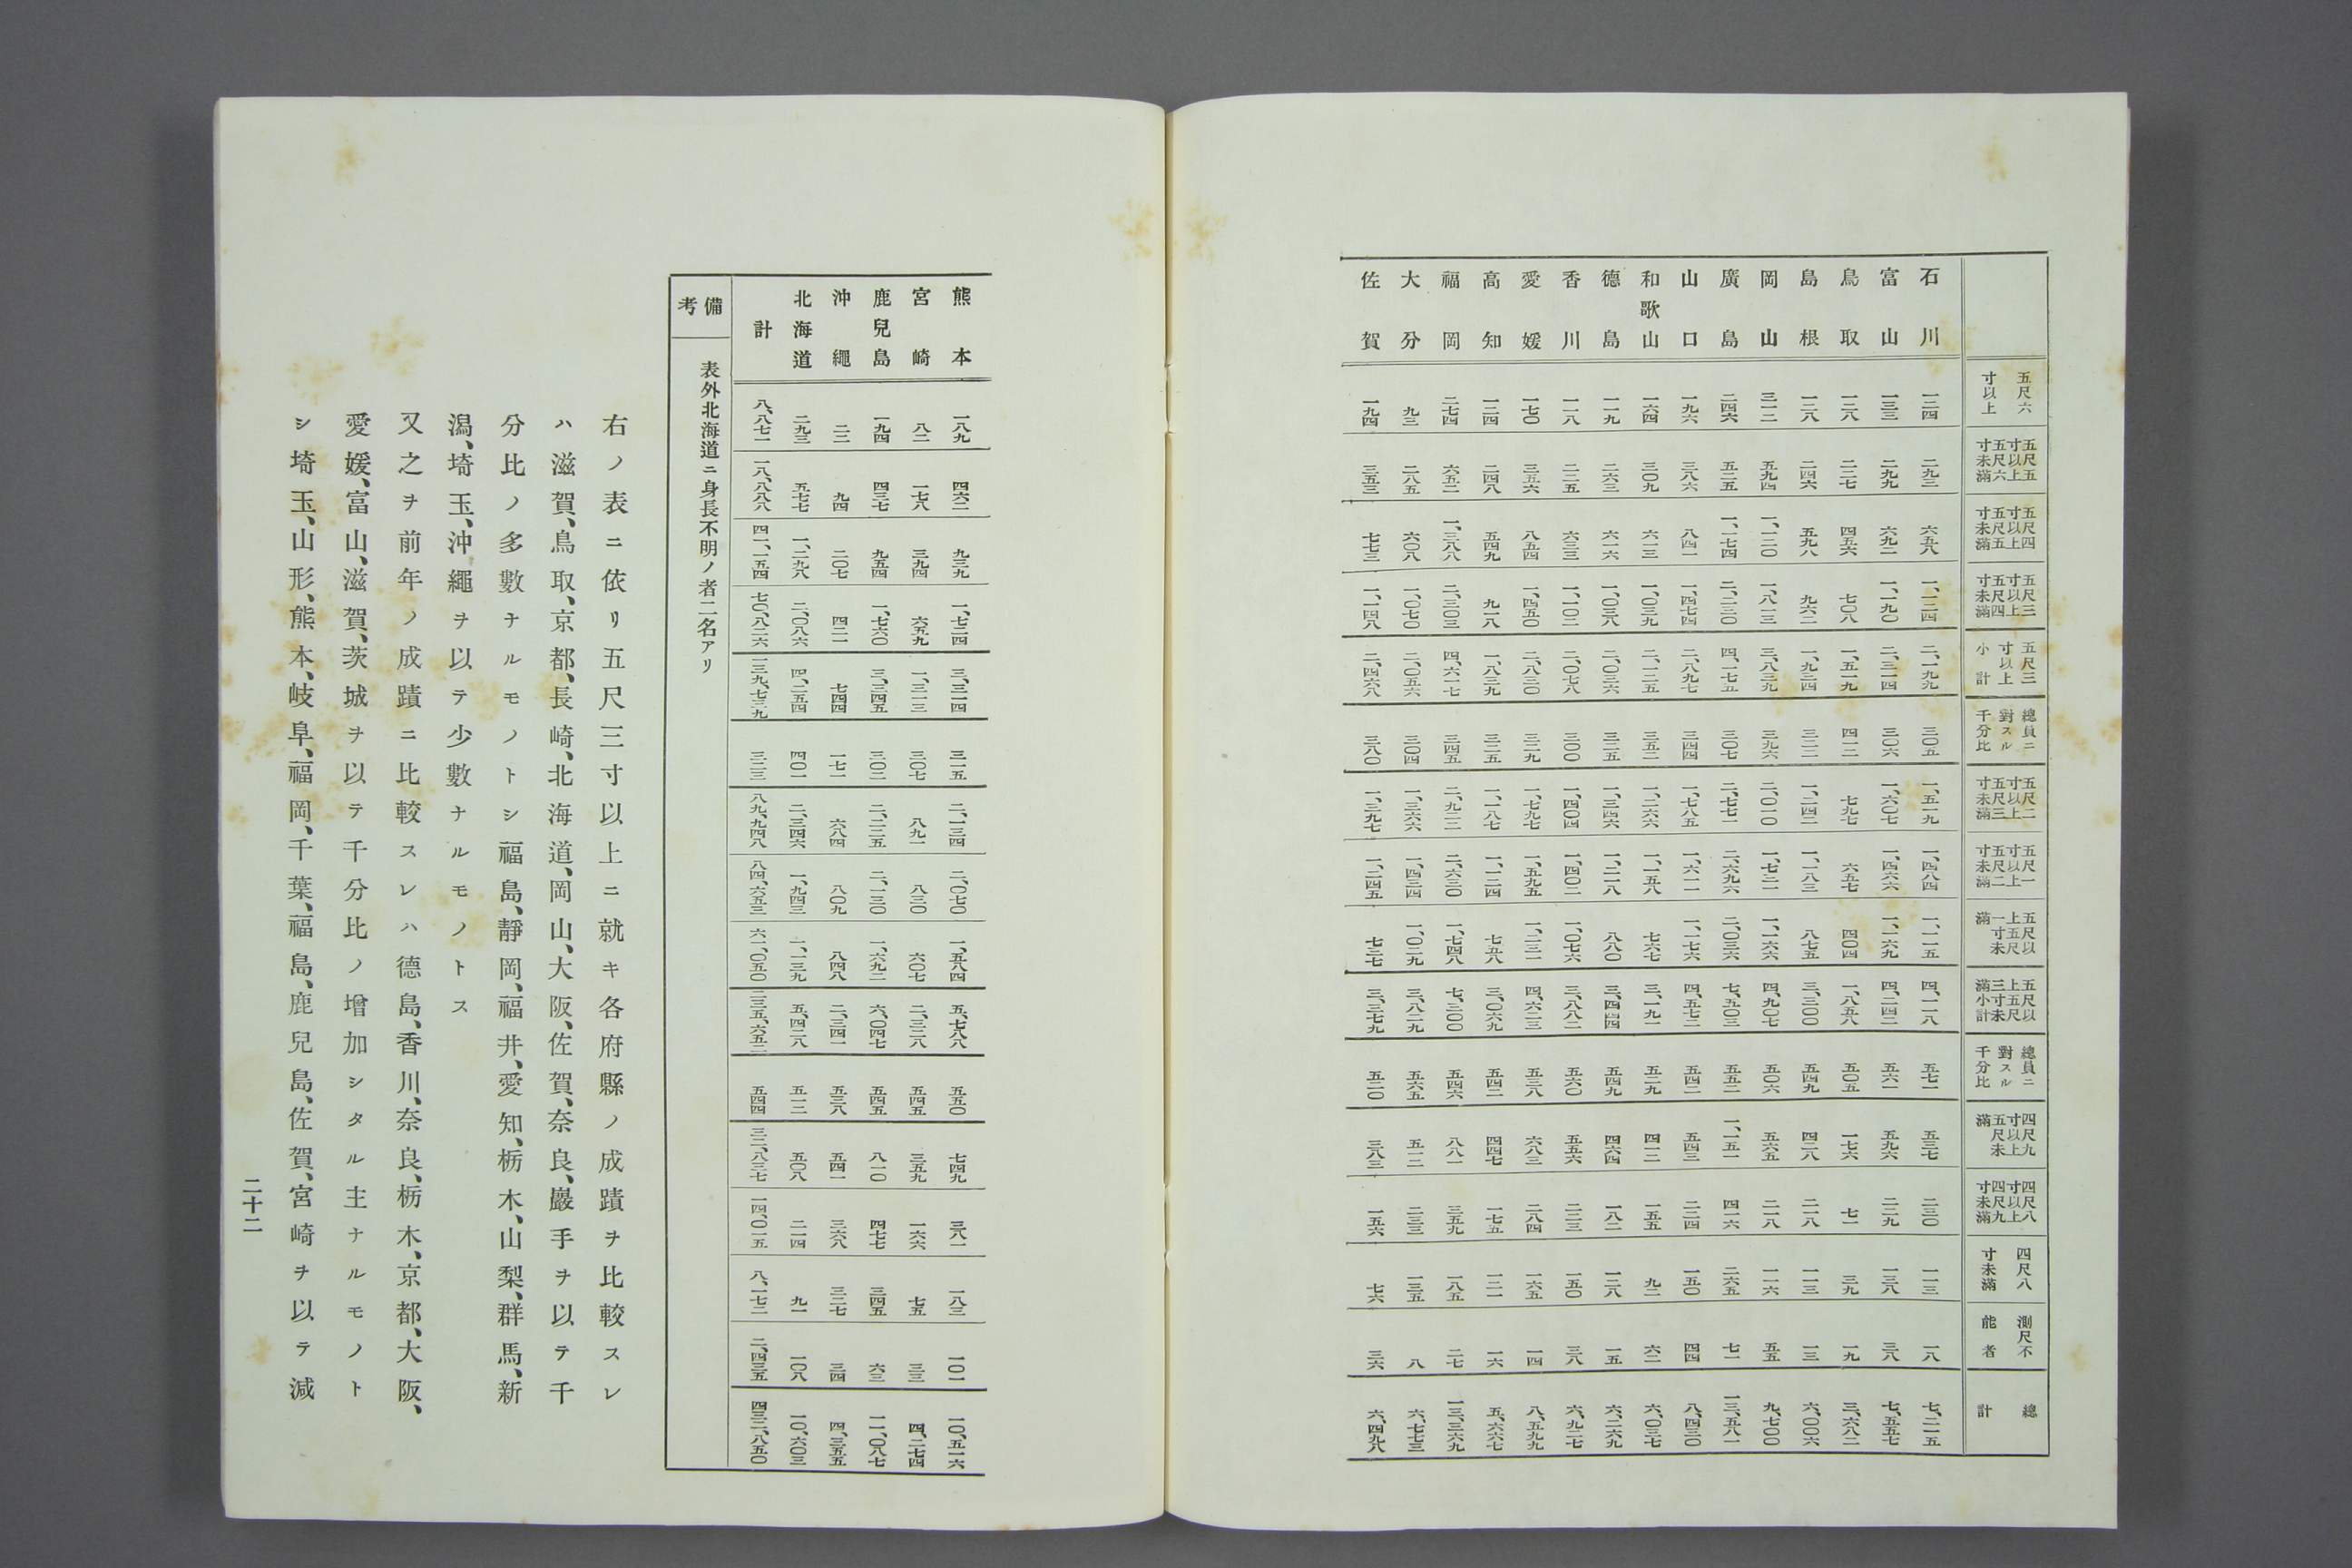 五尺六寸以上 五尺五寸以上五尺六寸未滿 五尺四寸以上五尺五寸未滿 五尺三寸以上五尺四寸未滿 五尺三寸以上小計 總員ニ對スル千分比 五尺二寸以上五尺三寸未滿 五尺一寸以上五尺二寸未滿 五尺以上五尺一寸未滿 五尺以上五尺三寸未滿小計 總員ニ對スル千分比 四尺九寸以上五尺未滿 四尺八寸以上四尺九寸未滿 四尺八寸未滿 測尺不能者 總計
石川 一二四 二九三 六五八 一、一二四 二、一九九 三〇五 一、五一九 一、四八四 一、一一五 四、一一八 五七一 五三七 二三〇 一一三 一八 七、二一五
富山 一三三 二九九 六九二 一、一九〇 二、三一四 三〇六 一、六〇七 一、四六六 一、一六九 四、二四二 五六一 五九六 二二九 一三八 三八 七、五五七
鳥取 一二八 二二七 四五六 七〇八 一、五一九 四一二 七九七 六五七 四〇四 一、八五八 五〇五 一七六 七一 三九 一九 三、六八二
島根 一二八 二四六 五九八 九六二 一、九三四 三二二 一、二四二 一、一八三 八七五 三、三〇〇 五四九 四二八 二一八 一一三 一三 六、〇〇六
岡山 三一二 五九四 一、一二〇 一、八一三 三、八三九 三九六 二、〇一〇 一、七三一 一、一六六 四、九〇七 五〇六 五六五 二一八 一一六 五五 九、七〇〇
廣島 二四六 五二五 一、一七四 二、二三〇 四、一七五 三〇七 二、七七一 二、六九六 二、〇三六 七、五〇三 五五二 一、一五一 四一六 二六五 七一 一三、五八一
山口 一九六 三八六 八四一 一、四七四 二、八九七 三四四 一、七八五 一、六一一 一、一七六 四、五七二 五四二 五四三 二二四 一五〇 四四 八、四三〇
和歌山 一六四 三〇九 六一三 一、〇三九 二、一二五 三五二 一、二六六 一、一五八 七六七 三、一九一 五二九 四一二 一五五 九二 六二 六、〇三七
德島 一一九 二六三 六一六 一、〇三八 二、〇三六 三二五 一、三四六 一、二一八 八八〇 三、四四四 五四九 四六四 一八二 一二八 一五 六、二六九
香川 一一八 二二五 六三三 一、一〇二 二、〇七八 三〇〇 一、四〇四 一、四〇二 一、〇七六 三、八八二 五六〇 五五六 二二三 一五〇 三八 六、九二七
愛媛 一七〇 三五六 八五四 一、四五〇 二、八三〇 三二九 一、七九七 一、五九五 一、二三一 四、六二三 五三八 六八三 二八四 一六五 一四 八、五九九
高知 一二四 二四八 五四九 九一八 一、八三九 三二五 一、一八七 一、一二四 七五八 三、〇六九 五四二 四四七 一七五 一二一 一六 五、六六七
福岡 二七四 六五二 一、三八八 二、三〇三 四、六一七 三四五 二、九二二 二、六三〇 一、七四八 七、三〇〇 五四六 八八一 三五九 一八五 二七 一三、三六九
大分 九三 二八五 六〇八 一、〇七〇 二、〇五六 三〇四 一、三六六 一、四三四 一、〇二九 三、八二九 五六五 五一二 二三三 一三五 八 六、七七三
佐賀 一九四 三五三 七七三 一、一四八 二、四六八 三八〇 一、三九七 一、二四五 七三七 三、三七九 五二〇 三八三 一五六 七六 三六 六、四九八
熊本 一八九 四六二 九三九 一、七二四 三、三一四 三一五 二、一三四 二、〇七〇 一、五八四 五、七八八 五五〇 七四九 三八一 一八三 一〇一 一〇、五一六
宮崎 八二 一七八 三九四 六五九 一、三一三 三〇七 八九一 八三〇 六〇七 二、三二八 五四五 三五九 一六六 七五 三三 四、二七四
鹿兒島 一九四 四三七 九五四 一、七六〇 三、三四五 三〇二 二、二二五 二、一三〇 一、六九二 六、〇四七 五四五 八一〇 四七七 三四五 六三 一一、〇八七
沖繩 二二 九四 二〇七 四二一 七四四 一七一 六八四 八〇九 八四八 二、三四一 五三八 五四一 三六八 三二七 三四 四、三五五
北海道 二九三 五七七 一、二九八 二、〇八六 四、二五四 四〇一 二、三四六 一、九四三 一、一三九 五、四二八 五一二 五〇八 二一四 九一 一〇八 一〇、六〇三
計 八、八七一 一八、八八八 四一、一五四 七〇、八二六 一三九、七三九 三二三 八九、九四八 八四、六五三 六一、〇五〇 二三五、六五二 五四四 三二、八三七 一四、〇一五 八、一七二 二、四三五 四三二、八五〇
備考 表外北海道ニ身長不明ノ者二名アリ
右ノ表ニ依リ五尺三寸以上ニ就キ各府縣ノ成蹟ヲ比較スレ
ハ滋賀、鳥取、京都、長崎、北海道、岡山、大阪、佐賀、奈良、巖手ヲ以テ千
分比ノ多數ナルモノトシ福島、靜岡、福井、愛知、栃木、山梨、群馬、新
潟、埼玉、沖繩ヲ以テ少數ナルモノトス
又之ヲ前年ノ成蹟ニ比較スレハ德島、香川、奈良、栃木、京都、大阪、
愛媛、富山、滋賀、茨城ヲ以テ千分比ノ增加シタル主ナルモノト
シ埼玉、山形、熊本、岐阜、福岡、千葉、福島、鹿兒島、佐賀、宮崎ヲ以テ減
二十二